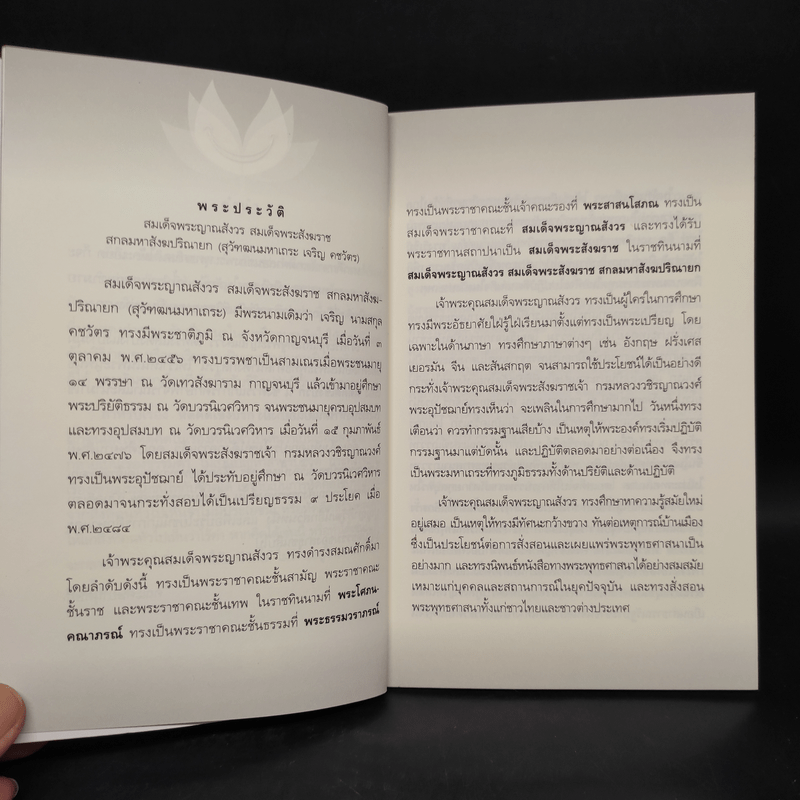 พระประวัติ
สมเด็จพระญาณสังวร สมเด็จพระสังฆราช
สกลมหาสังฆปริณายก (สุวัฑฒนมหาเถระ เจริญ คชวัตร)
สมเด็จพระญาณสังวร สมเด็จพระสังฆราช สกลมหาสังฆ-
ปริณายก (สุวัฑฒนมหาเถระ) มีพระนามเดิมว่า เจริญ นามสกุล
คชวัตร ทรงมีพระชาติภูมิ ณ จังหวัดกาญจนบุรี เมื่อวันที่ ๓
ตุลาคม พ.ศ.๒๔๕๖ ทรงบรรพชาเป็นสามเณรเมื่อพระชนมายุ
๑๔ พรรษา ณ วัดเทวสังฆาราม กาญจนบุรี แล้วเข้ามาอยู่ศึกษา
พระปริยัติธรรม ณ วัดบวรนิเวศวิหาร จนพระชนมายุครบอุปสมบท
และทรงอุปสมบท ณ วัดบวรนิเวศวิหาร เมื่อวันที่ ๑๕ กุมภาพันธ์
พ.ศ.๒๔๗๖ โดยสมเด็จพระสังฆราชเจ้า กรมหลวงวชิรญาณวงศ์
ทรงเป็นพระอุปัชฌาย์ ได้ประทับอยู่ศึกษา ณ วัดบวรนิเวศวิหาร
ตลอดมาจนกระทั่งสอบได้เป็นเปรียญธรรม ๙ ประโยค เมื่อ
พ.ศ.๒๔๘๔
เจ้าพระคุณสมเด็จพระญาณสังวร ทรงดำรงสมณศักดิ์มา
โดยลำดับดังนี้ ทรงเป็นพระราชาคณะชั้นสามัญ พระราชาคณะ
ชั้นราช และพระราชาคณะชั้นเทพ ในราชทินนามที่ พระโศภน-
คณาภรณ์ ทรงเป็นพระราชาคณะชั้นธรรมที่ พระธรรมวราภรณ์
ทรงเป็นพระราชาคณะชั้นเจ้าคณะรองที่ พระสาสนโสภณ ทรงเป็น
สมเด็จพระราชาคณะที่ สมเด็จพระญาณสังวร และทรงได้รับ
พระราชทานสถาปนาเป็น สมเด็จพระสังฆราช ในราชทินนามที่
สมเด็จพระญาณสังวร สมเด็จพระสังฆราช สกลมหาสังฆปริณายก
เจ้าพระคุณสมเด็จพระญาณสังวร ทรงเป็นผู้ใคร่ในการศึกษา
ทรงมีพระอัธยาศัยใฝ่รู้ใฝ่เรียนมาตั้งแต่ทรงเป็นพระเปรียญ โดย
เฉพาะในด้านภาษา ทรงศึกษาภาษาต่างๆ เช่น อังกฤษ ฝรั่งเศส
เยอรมัน จีน และสันสกฤต จนสามารถใช้ประโยชน์ได้เป็นอย่างดี
กระทั่งเจ้าพระคุณสมเด็จพระสังฆราชเจ้า กรมหลวงวชิรญาณวงศ์
พระอุปัชฌาย์ทรงเห็นว่า จะเพลินในการศึกษามากไป วันหนึ่งทรง
เตือนว่า ควรทำกรรมฐานเสียบ้าง เป็นเหตุให้พระองค์ทรงเริ่มปฏิบัติ
กรรมฐานมาแต่บัดนั้น และปฏิบัติตลอดมาอย่างต่อเนื่อง จึงทรง
เป็นพระมหาเถระที่ทรงภูมิธรรมทั้งด้านปริยัติและด้านปฏิบัติ
เจ้าพระคุณสมเด็จพระญาณสังวร ทรงศึกษาหาความรู้สมัยใหม่
อยู่เสมอ เป็นเหตุให้ทรงมีทัศนะกว้างขวาง ทันต่อเหตุการณ์บ้านเมือง
ซึ่งเป็นประโยชน์ต่อการสั่งสอนและเผยแผ่พระพุทธศาสนาเป็น
อย่างมาก และทรงนิพนธ์หนังสือทางพระพุทธศาสนาได้อย่างสมสมัย
เหมาะแก่บุคคลและสถานการณ์ในยุคปัจจุบัน และทรงสั่งสอน
พระพุทธศาสนาทั้งแก่ชาวไทยและชาวต่างประเทศ